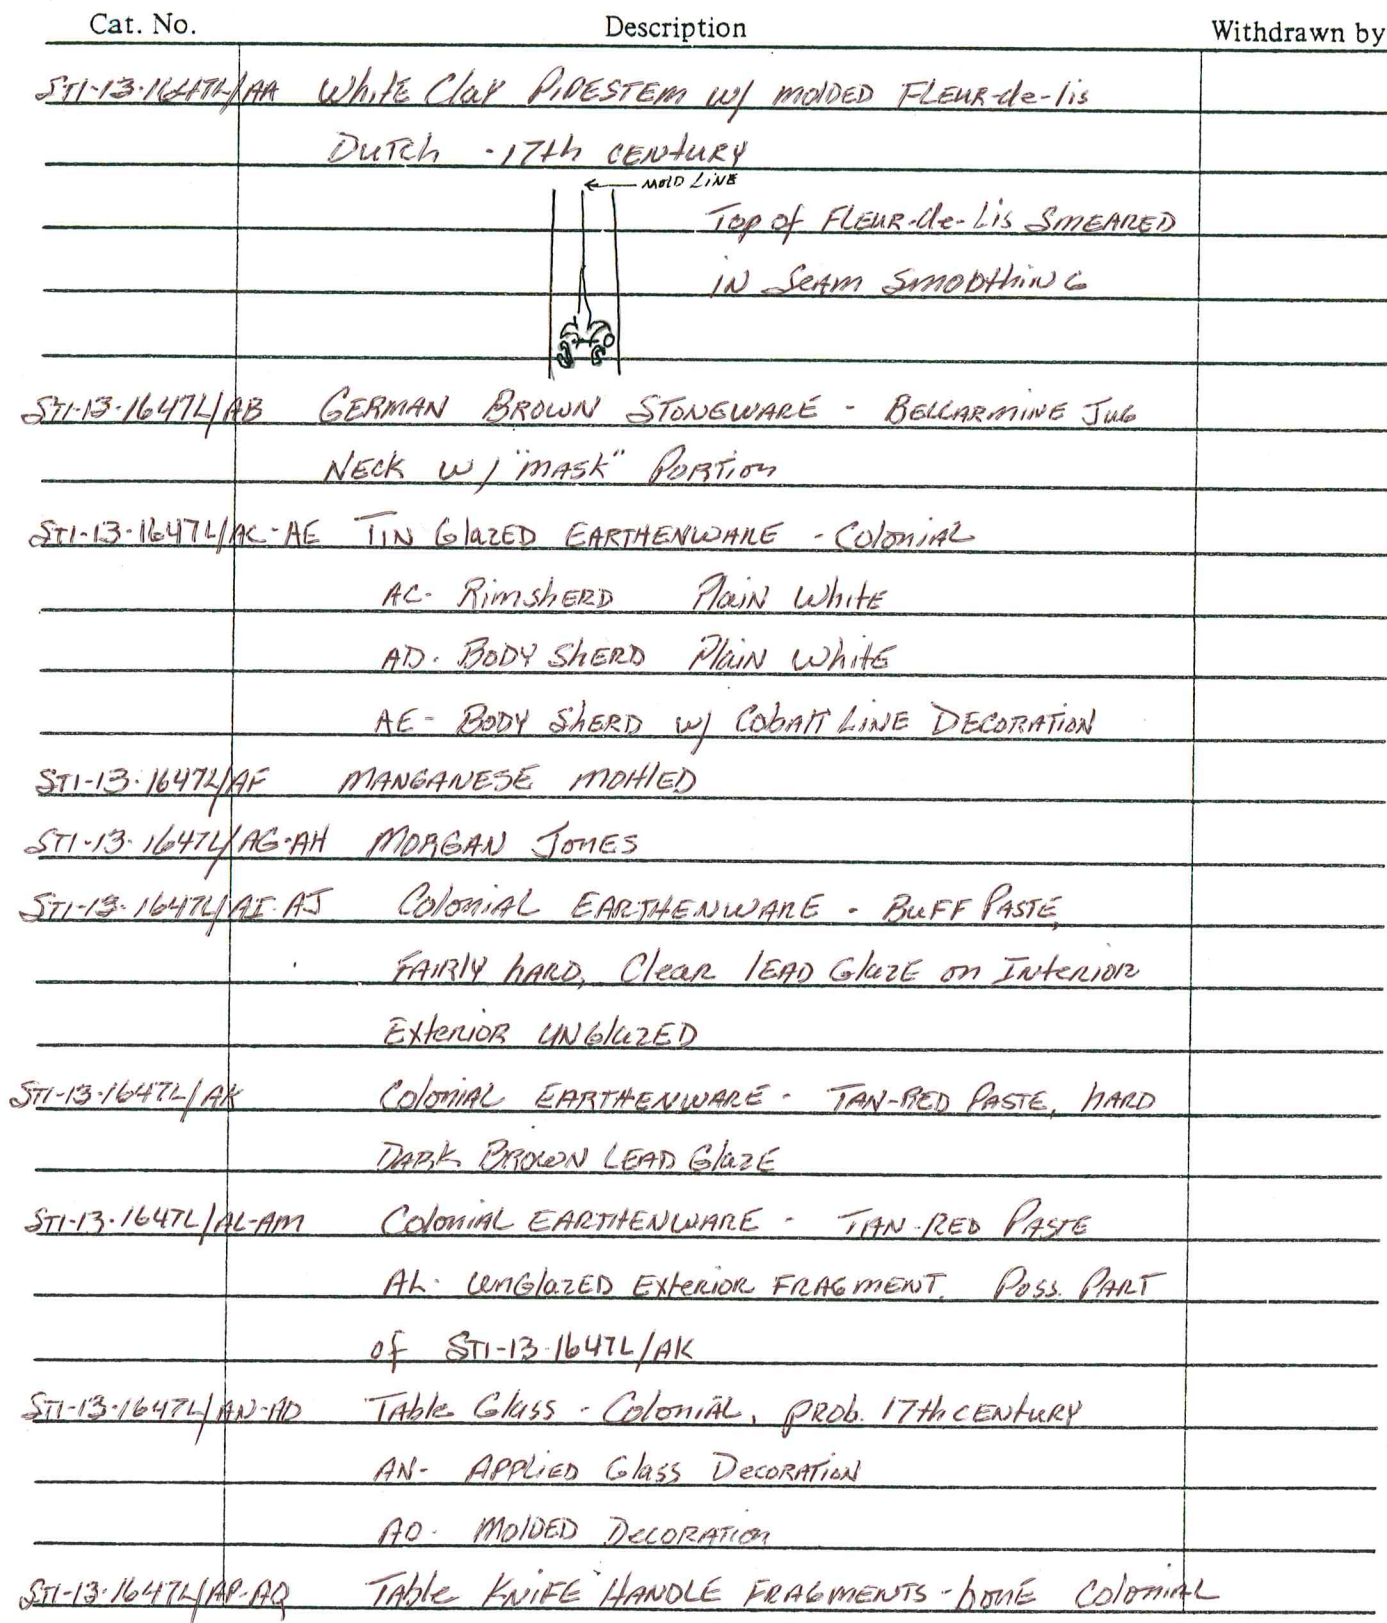 Cat. No. Description Withdrawn by
ST1-13-1647L/AA White Clay PIPESTEM w/ MOLDED FLEUR-de-lis
DUTCH - 17th CENTURY
MOLD LINE
Top of FLEUR-de-Lis SMEARED
IN SEAM SMOOTHING
ST1-13-1647L/AB GERMAN BROWN STONEWARE - BELLARMINE JUG
NECK W/ "MASK" PORTION
ST1-13-1647L/AC-AE TIN GLAZED EARTHENWARE - COLONIAL
AC- Rimsherd Plain White
AD- BODY SHERD Plain White
AE- BODY SHERD w/ COBALT LINE DECORATION
ST1-13-1647L/AF MANGANESE MOTTLED
ST1-13-1647L/AG-AH MORGAN JONES
ST1-13-1647L/AI-AJ COLONIAL EARTHENWARE - BUFF PASTE,
FAIRLY HARD, Clear LEAD Glaze on Interior
Exterior UNGlazed
ST1-13-1647L/AK COLONIAL EARTHENWARE - TAN-RED PASTE, HARD
DARK BROWN LEAD Glaze
ST1-13-1647L/AL-AM COLONIAL EARTHENWARE - TAN-RED PASTE
AL- UNGlazed Exterior FRAGMENT. Poss. PART
of ST1-13-1647L/AK
ST1-13-1647L/AN-AO Table Glass - COLONIAL, prob. 17th CENTURY
AN- APPLIED Glass DECORATION
AO- MOLDED DECORATION
ST1-13-1647L/AP-AQ Table KNIFE HANDLE FRAGMENTS - bone COLONIAL